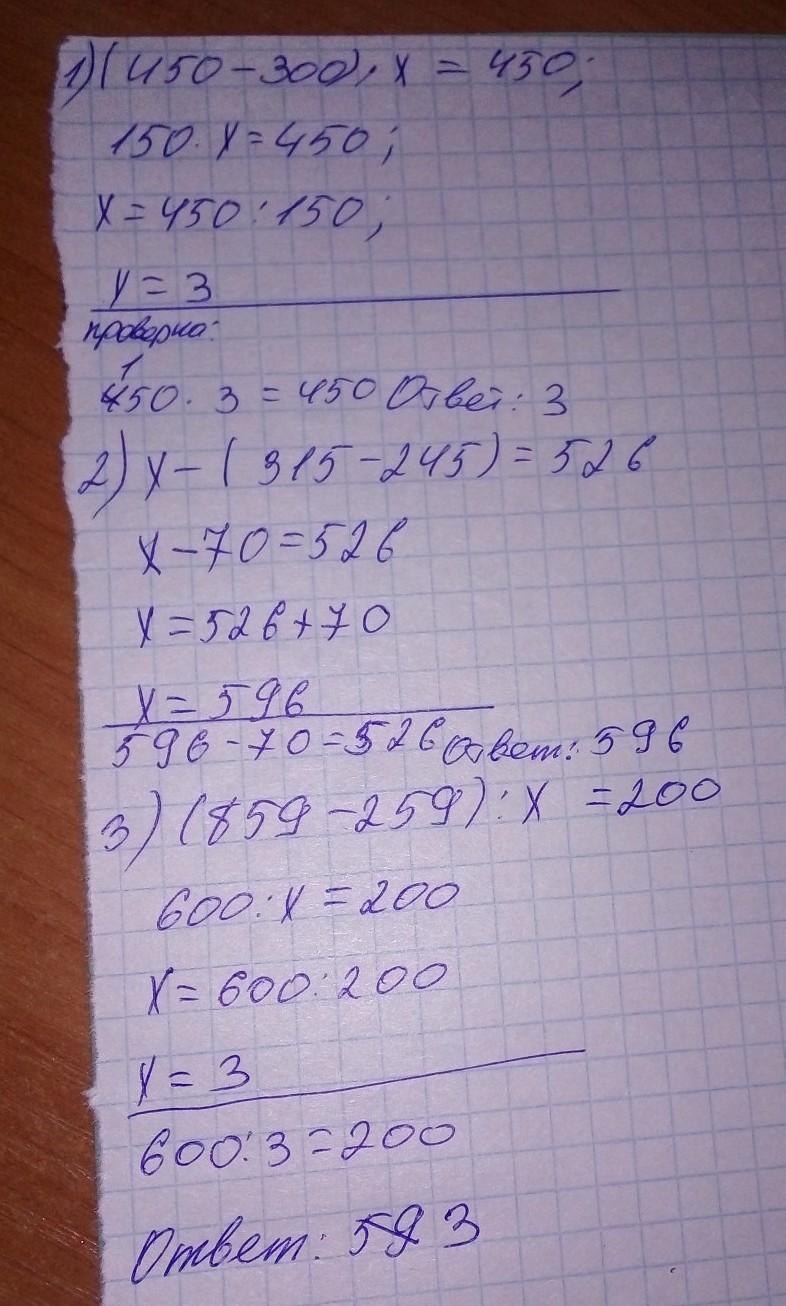 1) (450-300)·x = 450;
150·x=450;
x=450:150;
x=3
проверка:
150·3=450 Ответ: 3
2) x-(315-245)=526
x-70=526
x=526+70
x=596
596-70=526 Ответ: 596
3) (859-259):x =200
600:x=200
x=600:200
x=3
600:3=200
Ответ: 3